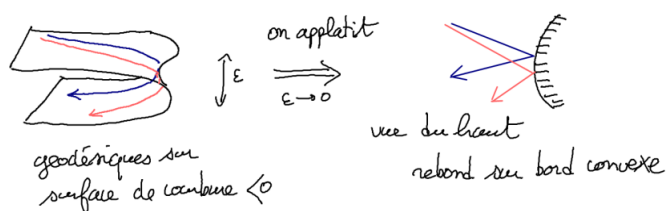 on applatit
ε
ε→0
géodésiques sur
surface de courbure <0
vue du haut
rebond sur bord convexe